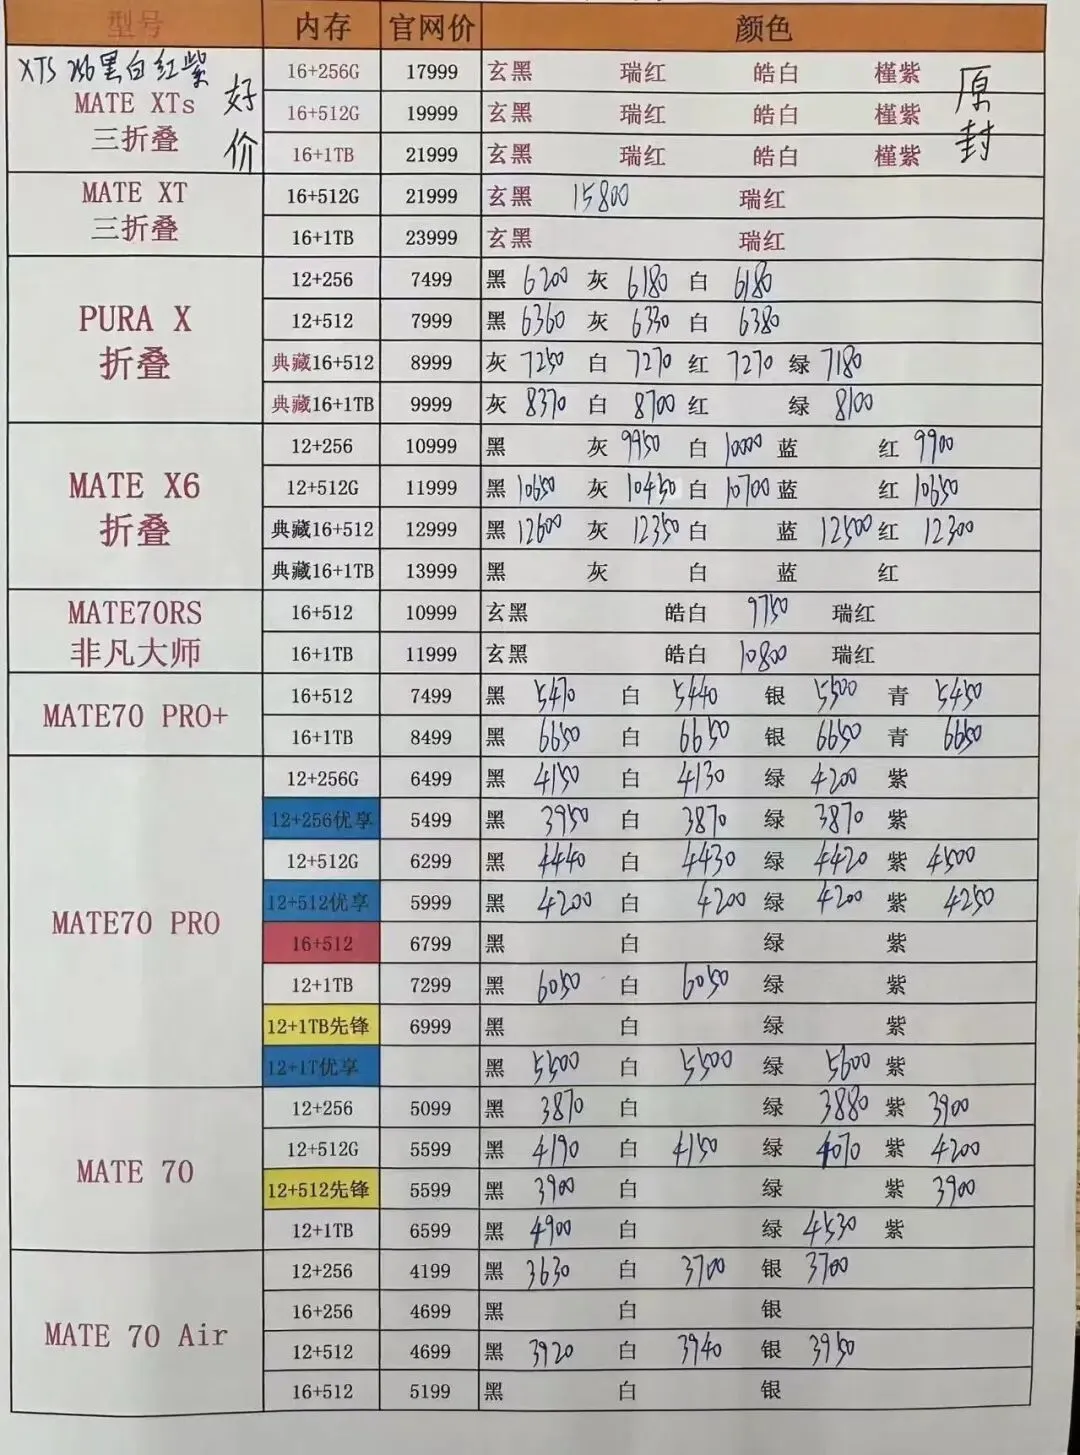 型号 内存 官网价 颜色
XTS 256黑白红紫
好价
原封
MATE XTs
三折叠
16+256G 17999 玄黑 瑞红 皓白 槿紫
16+512G 19999 玄黑 瑞红 皓白 槿紫
16+1TB 21999 玄黑 瑞红 皓白 槿紫
MATE XT
三折叠
16+512G 21999 玄黑 15800 瑞红
16+1TB 23999 玄黑 瑞红
PURA X
折叠
12+256 7499 黑 6200 灰 6180 白 6180
12+512 7999 黑 6360 灰 6330 白 6380
典藏16+512 8999 灰 7250 白 7270 红 7270 绿 7180
典藏16+1TB 9999 灰 8370 白 8700 红 绿 8100
MATE X6
折叠
12+256 10999 黑 灰 9950 白 10000 蓝 红 9900
12+512G 11999 黑 10650 灰 10450 白 10700 蓝 红 10650
典藏16+512 12999 黑 12600 灰 12350 白 蓝 12500 红 12300
典藏16+1TB 13999 黑 灰 白 蓝 红
MATE70RS
非凡大师
16+512 10999 玄黑 皓白 9750 瑞红
16+1TB 11999 玄黑 皓白 10800 瑞红
MATE70 PRO+
16+512 7499 黑 5470 白 5440 银 5500 青 5450
16+1TB 8499 黑 6650 白 6650 银 6650 青 6650
MATE70 PRO
12+256G 6499 黑 4150 白 4130 绿 4200 紫
12+256优享 5499 黑 3950 白 3870 绿 3870 紫
12+512G 6299 黑 4440 白 4430 绿 4420 紫 4500
12+512优享 5999 黑 4200 白 4200 绿 4200 紫 4250
16+512 6799 黑 白 绿 紫
12+1TB 7299 黑 6050 白 6050 绿 紫
12+1TB先锋 6999 黑 白 绿 紫
12+1T优享 黑 5500 白 5500 绿 5600 紫
MATE 70
12+256 5099 黑 3870 白 绿 3880 紫 3900
12+512G 5599 黑 4190 白 4150 绿 4070 紫 4200
12+512先锋 5599 黑 3900 白 绿 紫 3900
12+1TB 6599 黑 4900 白 绿 4530 紫
MATE 70 Air
12+256 4199 黑 3630 白 3700 银 3700
16+256 4699 黑 白 银
12+512 4699 黑 3920 白 3940 银 3950
16+512 5199 黑 白 银